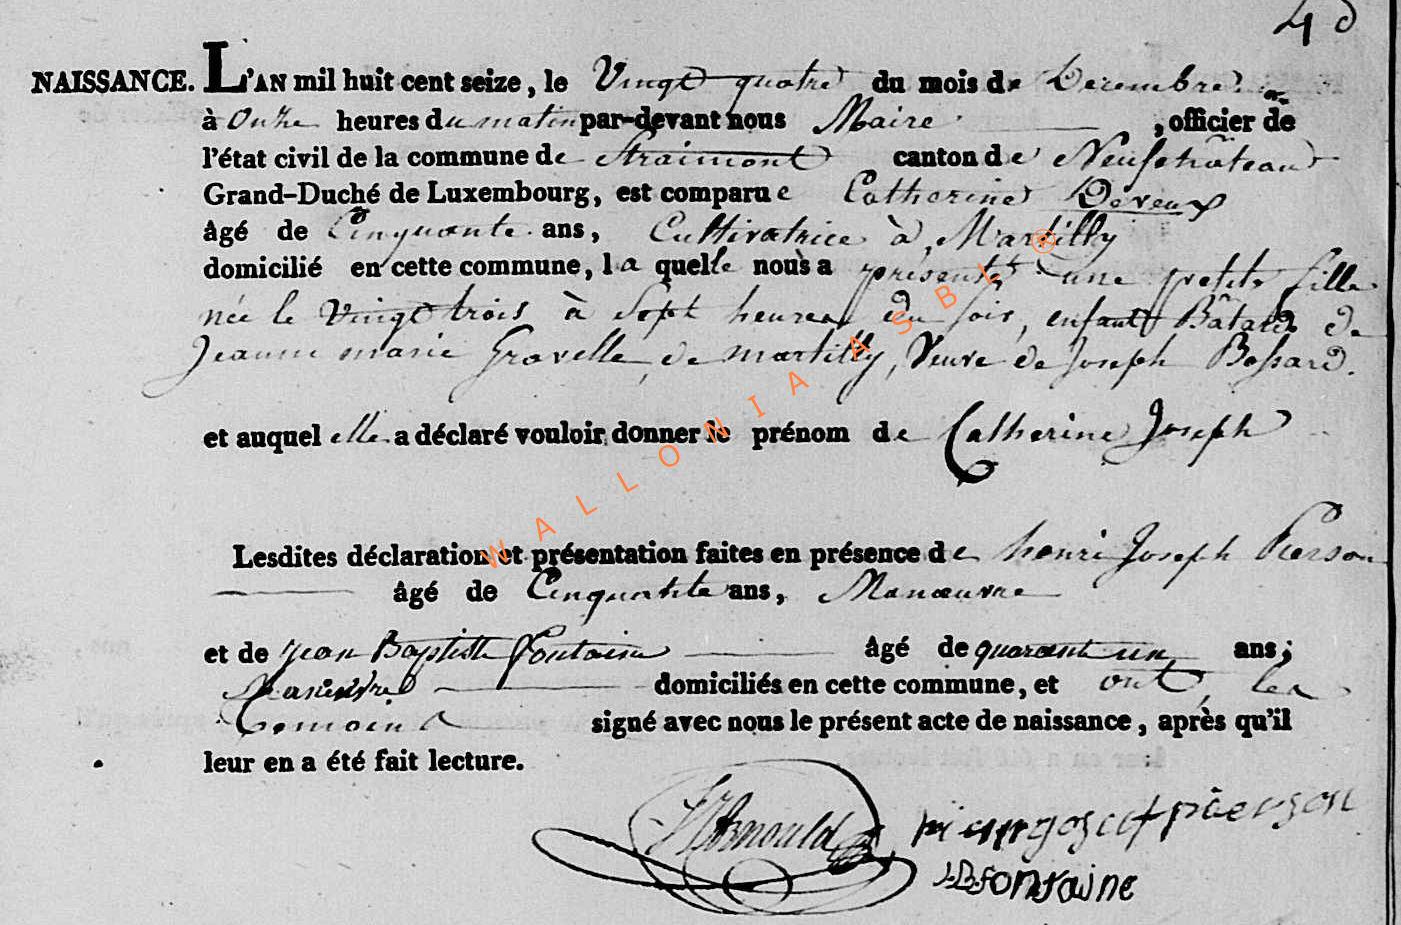 40
NAISSANCE. L'AN mil huit cent seize, le Vingt quatre du mois de Decembre
à Onze heures du matin par-devant nous Maire , officier de
l'état civil de la commune de Straimont canton de Neufchâteau
Grand-Duché de Luxembourg, est comparue Catherine Deveux
âgé de Cinquante ans, Cultivatrice à Martilly
domicilié en cette commune, la quelle nous a présenté une petite fille
née le Vingt trois à Sept heures du soir, enfant Bâtard de
Jeanne marie Gravelle, de martilly, Veuve de Joseph Bossard.
et auquel elle a déclaré vouloir donner le prénom de Catherine Joseph
Lesdites déclaration et présentation faites en présence de henri Joseph Pierson
âgé de Cinquante ans, Manœuvre
et de jean Baptiste fontaine âgé de quarant un ans;
Manœuvre domiciliés en cette commune, et ont les
Temoins signé avec nous le présent acte de naissance, après qu'il
leur en a été fait lecture.
Arnould pierson
J.B. fontaine
WALLONIA ASBL ®